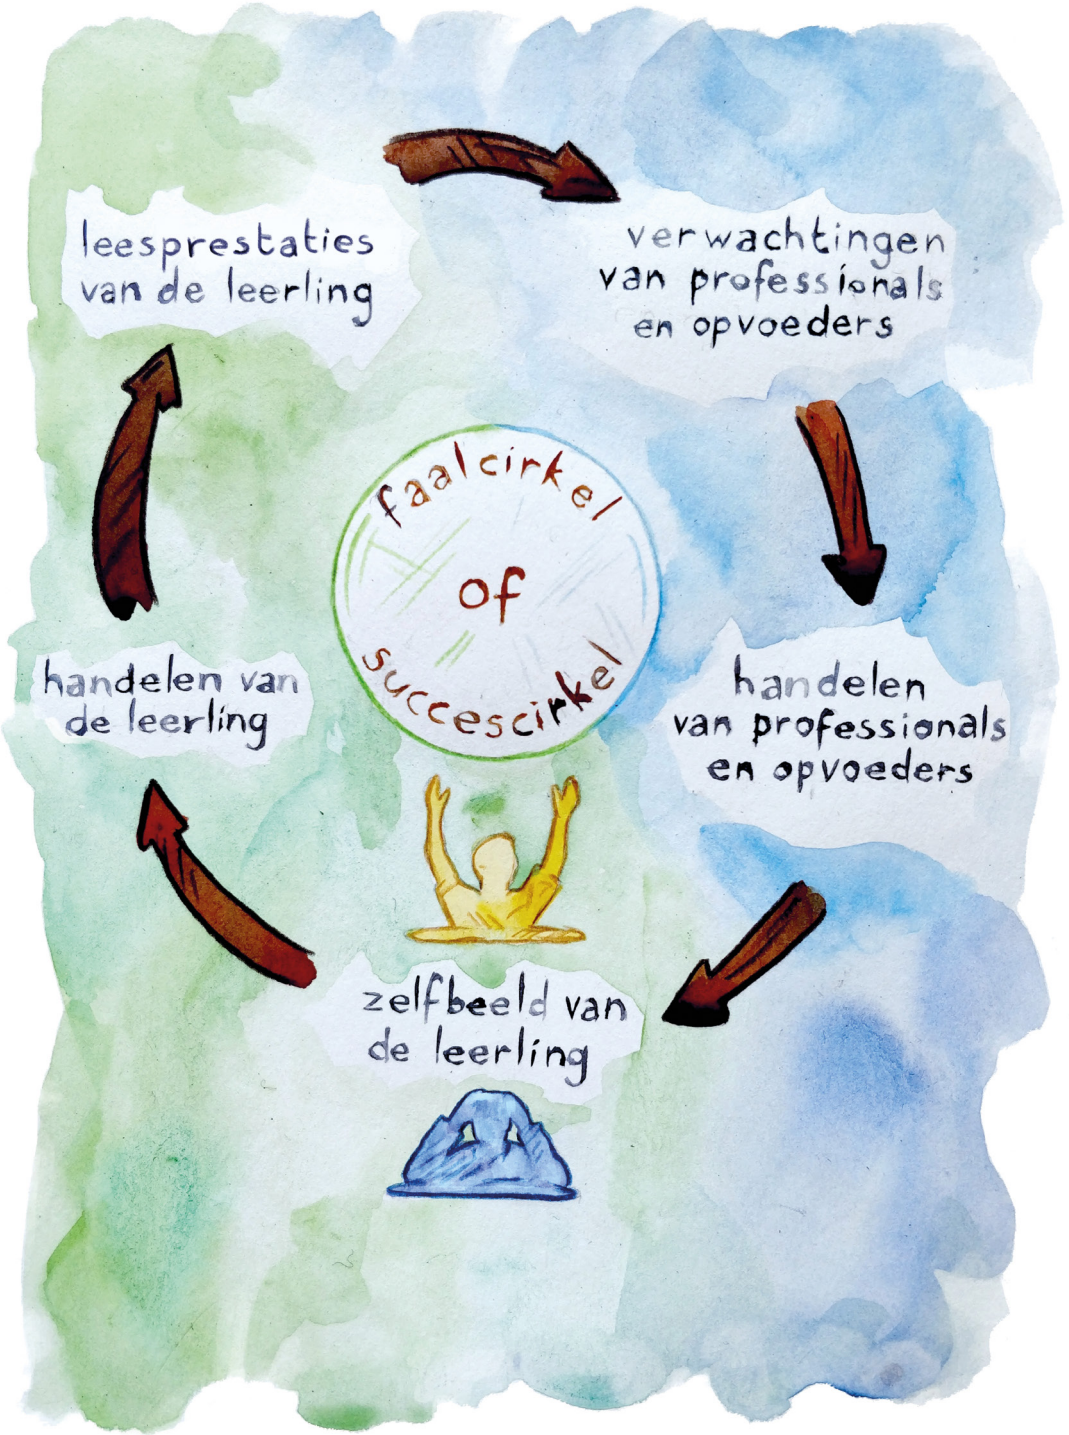 leesprestaties
van de leerling
verwachtingen
van professionals
en opvoeders
faalcirkel
of
succescirkel
handelen van
de leerling
handelen
van professionals
en opvoeders
zelfbeeld van
de leerling